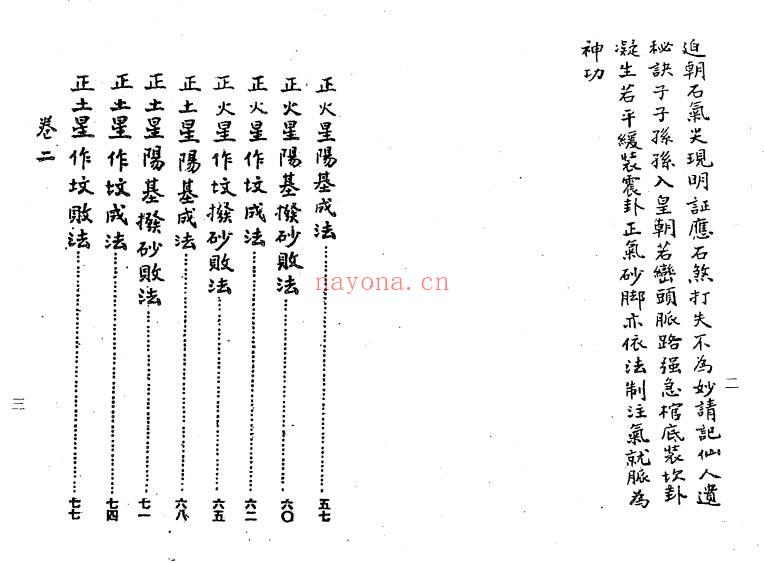 迫朝石氣尖現明証應石煞打失不為妙請記仙人遺
秘訣子子孫孫入皇朝若巒頭脈路强急棺底裝坎卦
凝生若平緩裝震卦正氣砂脚亦依法制注氣就脈為
神功
二
正火星陽基成法……五七
正火星陽基撥砂敗法……六〇
正火星作坟成法……六二
正火星作坟撥砂敗法……六五
正土星陽基成法……六八
正土星陽基撥砂敗法……七一
正土星作坟成法……七四
正土星作坟敗法……七七
卷二
三
nayona.cn